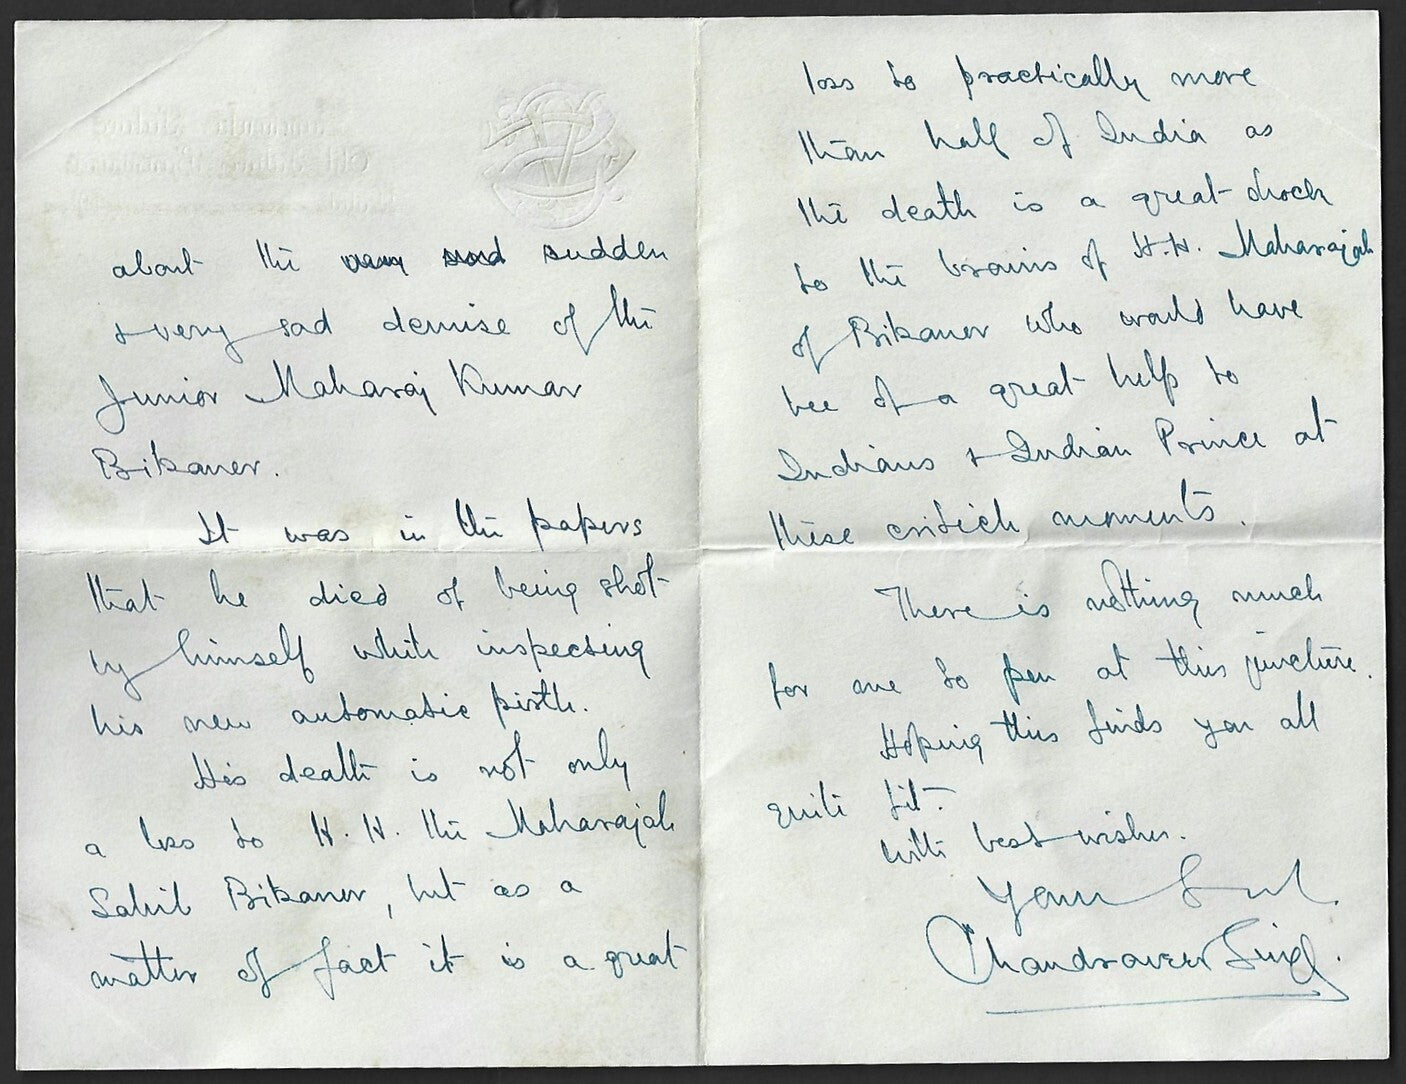 about the very sad sudden
& very sad demise of the
Junior Maharaj Kumar
Bikaner.
It was in the papers
that he died of being shot
by himself while inspecting
his new automatic pistle.
His death is not only
a loss to H. H. the Maharajah
Sahib Bikaner, but as a
matter of fact it is a great
loss to practically more
than half of India as
the death is a great shock
to the brains of H.H. Maharajah
of Bikaner who would have
bee of a great help to
Indians & Indian Prince at
these critich moments.
There is nothing much
for me to pen at this juncture.
Hoping this finds you all
quite fit.
With best wishes.
Chandraveer Singh.